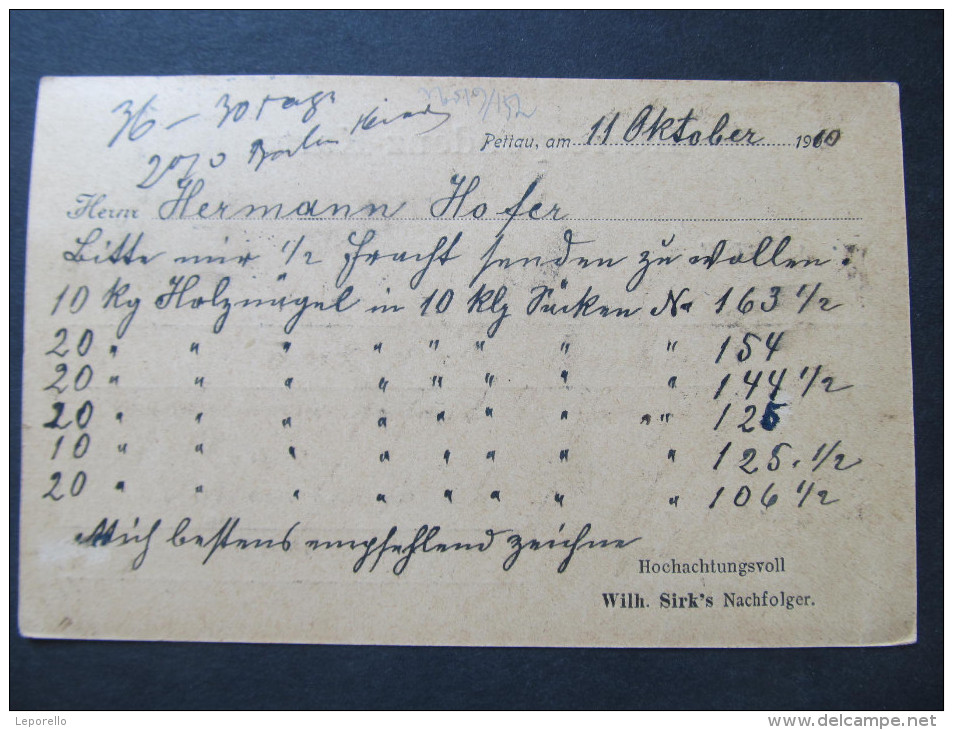 36 – 30 Tage
2%
Pettau, am 11 Oktober 1910
Herrn Hermann Hofer
Bitte mir 1/2 Fracht senden zu wollen:
10 Kg Holznägel in 10 Klg Säcken No 163 1/2
20 " " " " " " " " 154
20 " " " " " " " " 144 1/2
20 " " " " " " " " 125
10 " " " " " " " " 125. 1/2
20 " " " " " " " " 106 1/2
Mich bestens empfehlend zeichne
Hochachtungsvoll
Wilh. Sirk's Nachfolger.
Leporello
www.delcampe.net